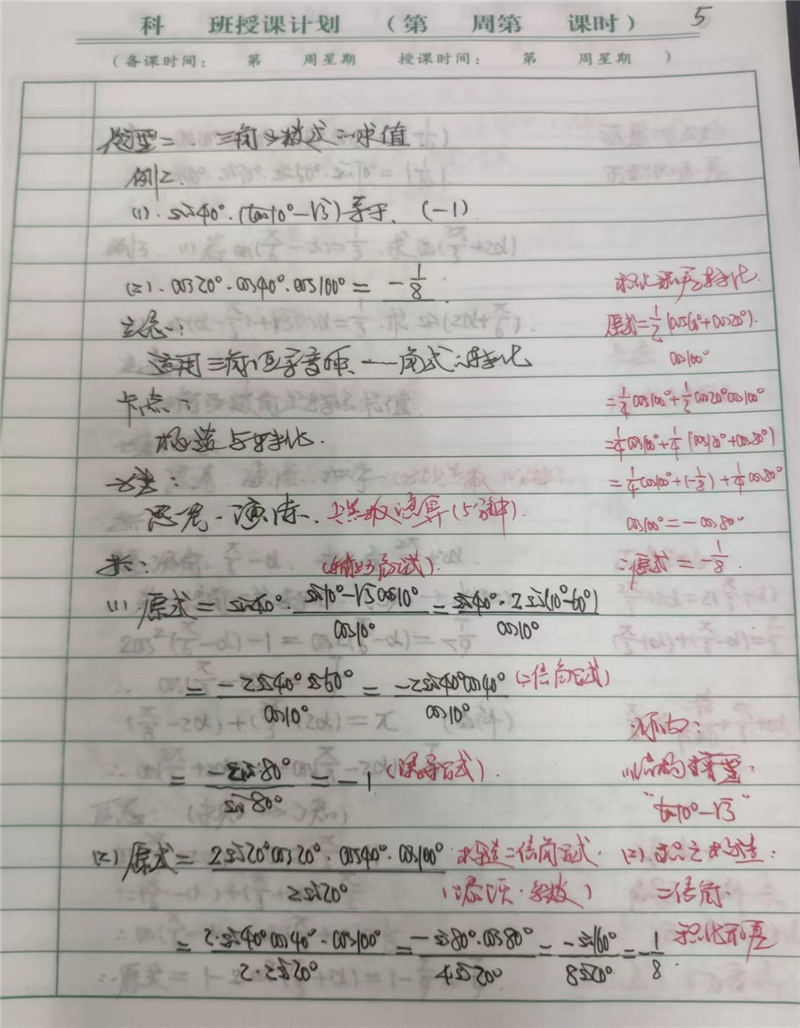 科 班授课计划 (第 周第 课时) 5
(备课时间: 第 周星期 授课时间: 第 周星期 )
题型二、三角函数式的求值
例2:
(1). sin40°·(tan10°-√3)等于. (-1)
(2). cos20°·cos40°·cos100° = -1/8
立意:
运用三角恒等变换——角式的转化
卡点:
构造与转化.
方法:
思考·演练. 上黑板演算(5分钟).
解: (辅助角公式).
(1) 原式 = sin40°·(sin10°-√3cos10°)/cos10° = sin40°·2sin(10°-60°)/cos10°
= -2sin40°sin50°/cos10° = -2sin40°cos40°/cos10° (二倍角公式)
= -sin80°/sin80° = -1 (诱导公式).
(2) 原式 = 2sin20°cos20°·cos40°·cos100°/2sin20° 构造二倍角公式.
(添项·系数)
= 2·sin40°cos40°·cos100°/2·2sin20° = -sin80°·cos80°/4sin20° = -sin160°/8sin20° = -1/8
积化和差转化.
原式=1/2(cos60°+cos20°).
cos100°
=1/4cos100°+1/2cos20°cos100°
=1/4cos100°+1/4(cos120°+cos80°)
=1/4cos100°+(-1/8)+1/4cos80°
cos100°=-cos80°
∴原式=-1/8.
(1)结构模型:
"tan10°-√3"
(2)
二倍角.
积化和差